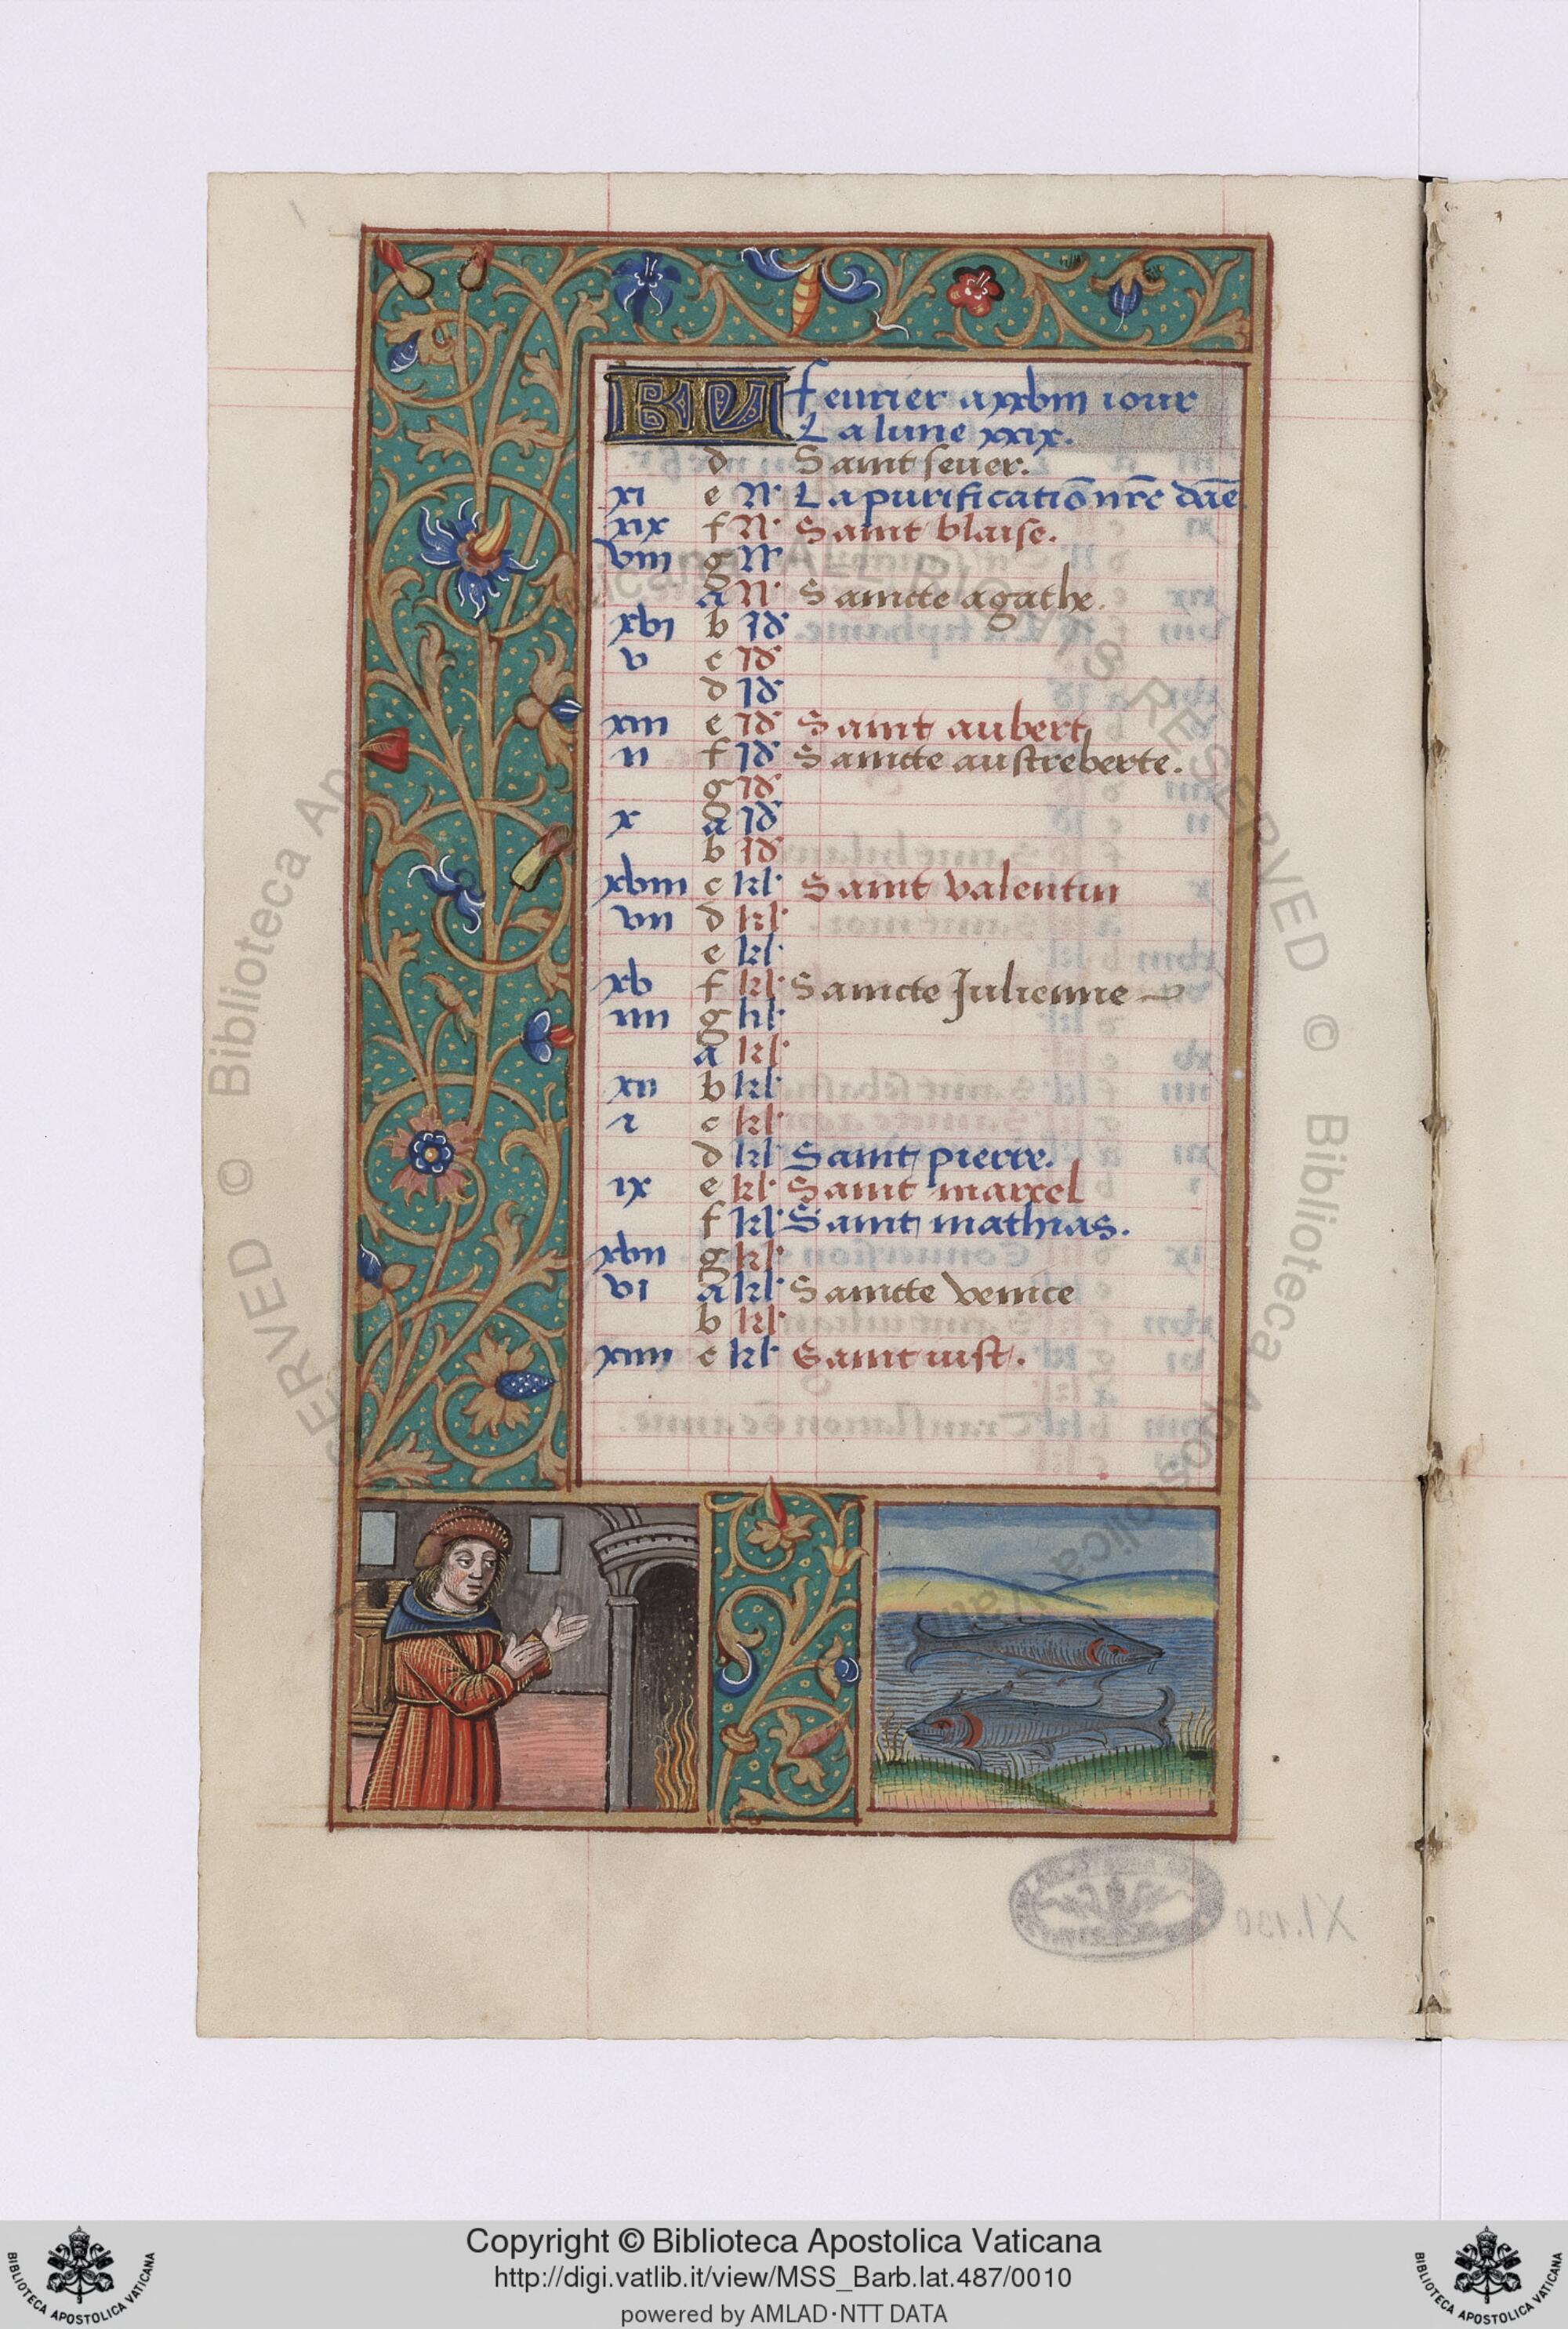 KL feurier a xxbiii iour
La lune xxix.
d Saint seuer.
xi e N. La purificatiō nr̄e dāe
xix f N. Saint blaise.
viii g N.
a N. Saincte agathe.
xbi b id
v c id
d id
xiii e id Saint aubert
ii f id Saincte austreberte.
g id
x a id
b id
xbiii c kl. Saint valentin
vii d kl.
e kl.
xb f kl. Saincte Julienne
iiii g kl.
a kl.
xii b kl.
i c kl.
d kl. Saint pierre.
ix e kl. Saint marcel
f kl. Saint mathias.
xbii g kl.
vi a kl. Saincte venice
b kl.
xiiii c kl. Saint iust.
Copyright © Biblioteca Apostolica Vaticana
http://digi.vatlib.it/view/MSS_Barb.lat.487/0010
powered by AMLAD·NTT DATA
BIBLIOTECA APOSTOLICA VATICANA
BIBLIOTECA APOSTOLICA VATICANA